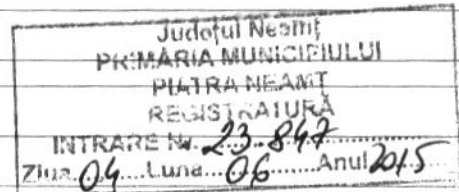 Județul Neamț
PRIMĂRIA MUNICIPIULUI
PIATRA NEAMȚ
REGISTRATURĂ
INTRARE Nr. 23.847
Ziua 04 Luna 06 Anul 2015